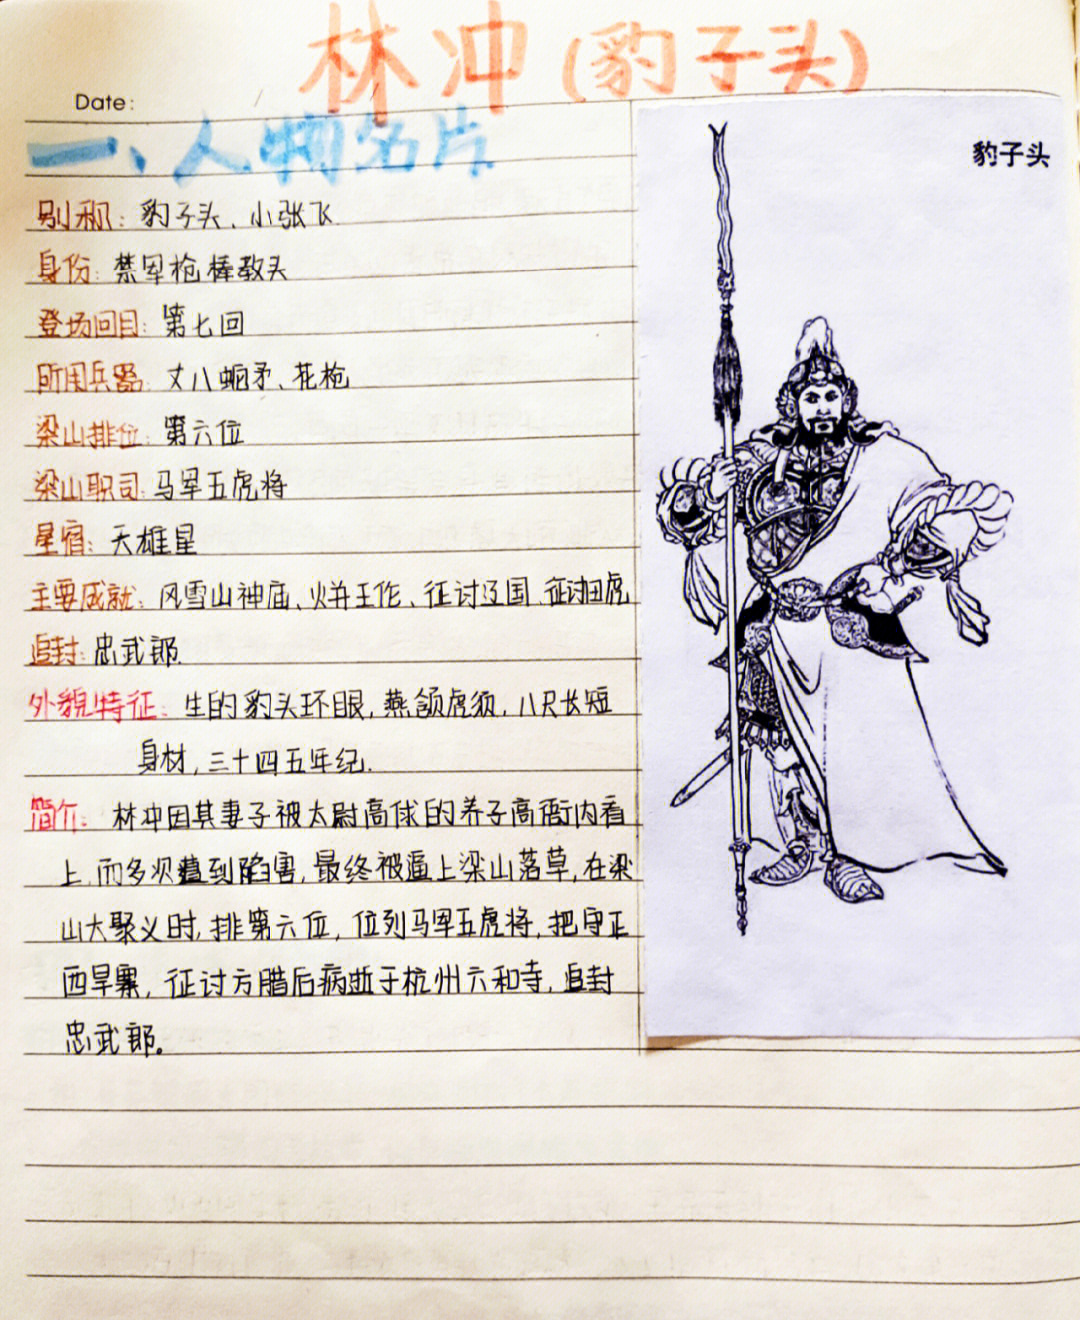 林冲(豹子头)
Date:
一、人物名片
豹子头
别称：豹子头、小张飞
身份：禁军枪棒教头
登场回目：第七回
所用兵器：丈八蛇矛、花枪
梁山排位：第六位
梁山职司：马军五虎将
星宿：天雄星
主要成就：风雪山神庙、火并王伦、征讨辽国、征讨田虎
追封：忠武郎
外貌特征：生的豹头环眼，燕颌虎须，八尺长短
身材，三十四五年纪.
简介：林冲因其妻子被太尉高俅的养子高衙内看
上，而多次遭到陷害，最终被逼上梁山落草，在梁
山大聚义时，排第六位，位列马军五虎将，把守正
西旱寨，征讨方腊后病逝于杭州六和寺，追封
忠武郎。